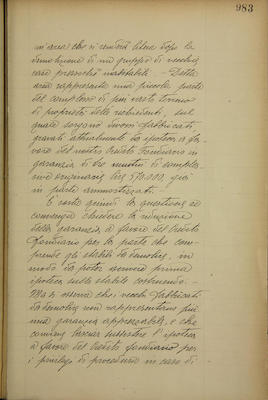 983
un'area che si renderà libera dopo la
demolizione di un gruppo di vecchie
case pressochè inabitabili. - Detta
area rappresenta una piccola parte
del complesso di più vasto terreno
di proprietà delle richiedenti, sul
quale sorgono diversi fabbricati
gravati attualmente da ipoteca a fa-
vore del nostro Credito Fondiario in
garanzia di tre mutui di comples-
sive originarie Lire 570.000, già
in parte ammortizzati. -
È sorta quindi la questione se
convenga chiedere la riduzione
della garanzia, a favore del Credito
Fondiario per la parte che com-
prende gli stabili da demolire, in
modo da poter avere prima
ipoteca sullo stabile costruendo. -
Ma si osserva che i vecchi fabbricati
da demolire non rappresentano più
una garanzia apprezzabile, e che
conviene lasciar sussistere l'ipoteca
a favore del Credito Fondiario per
i privilegi di procedura in caso di